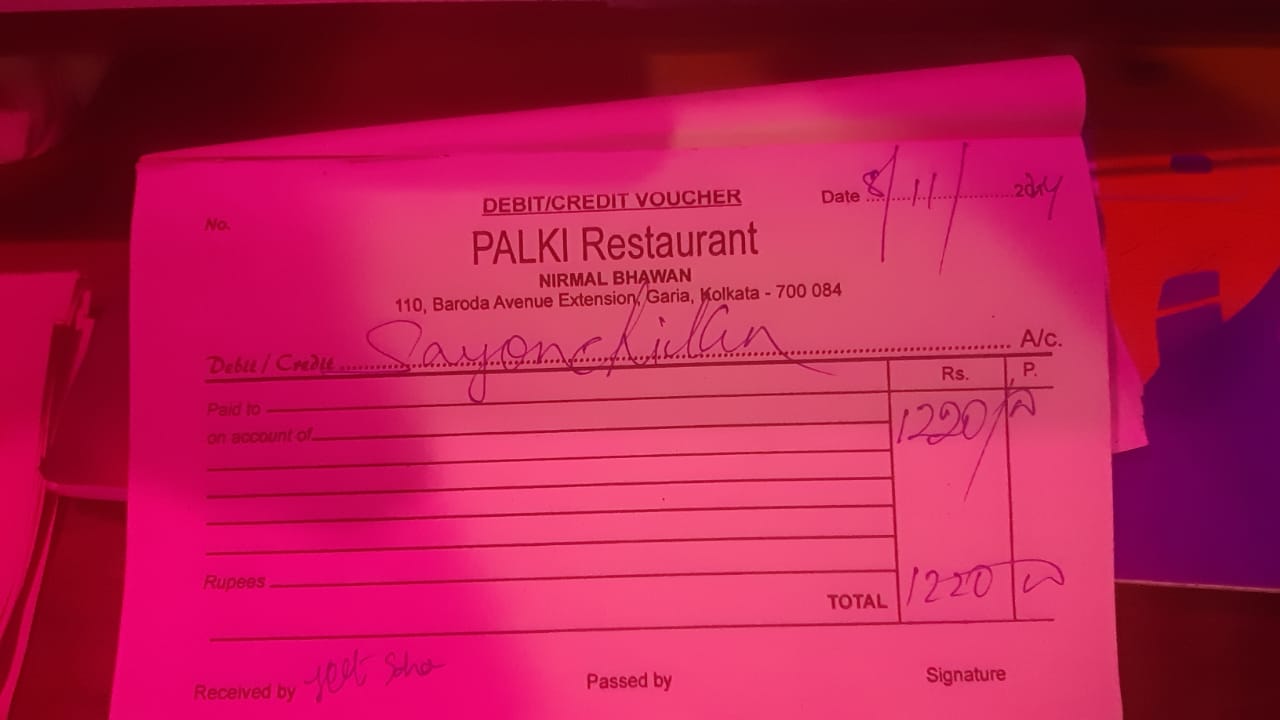 DEBIT/CREDIT VOUCHER
Date 8/11/2024
No.
PALKI Restaurant
NIRMAL BHAWAN
110, Baroda Avenue Extension, Garia, Kolkata - 700 084
Debit / Credit A/c.
Rs. P.
Paid to 1220/
on account of
Rupees
TOTAL 1220
Received by
Passed by
Signature